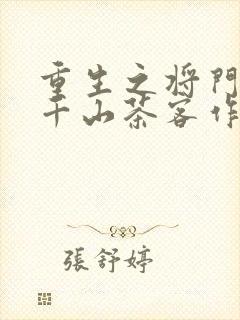 重生之将門
千山茶客作
張舒婷